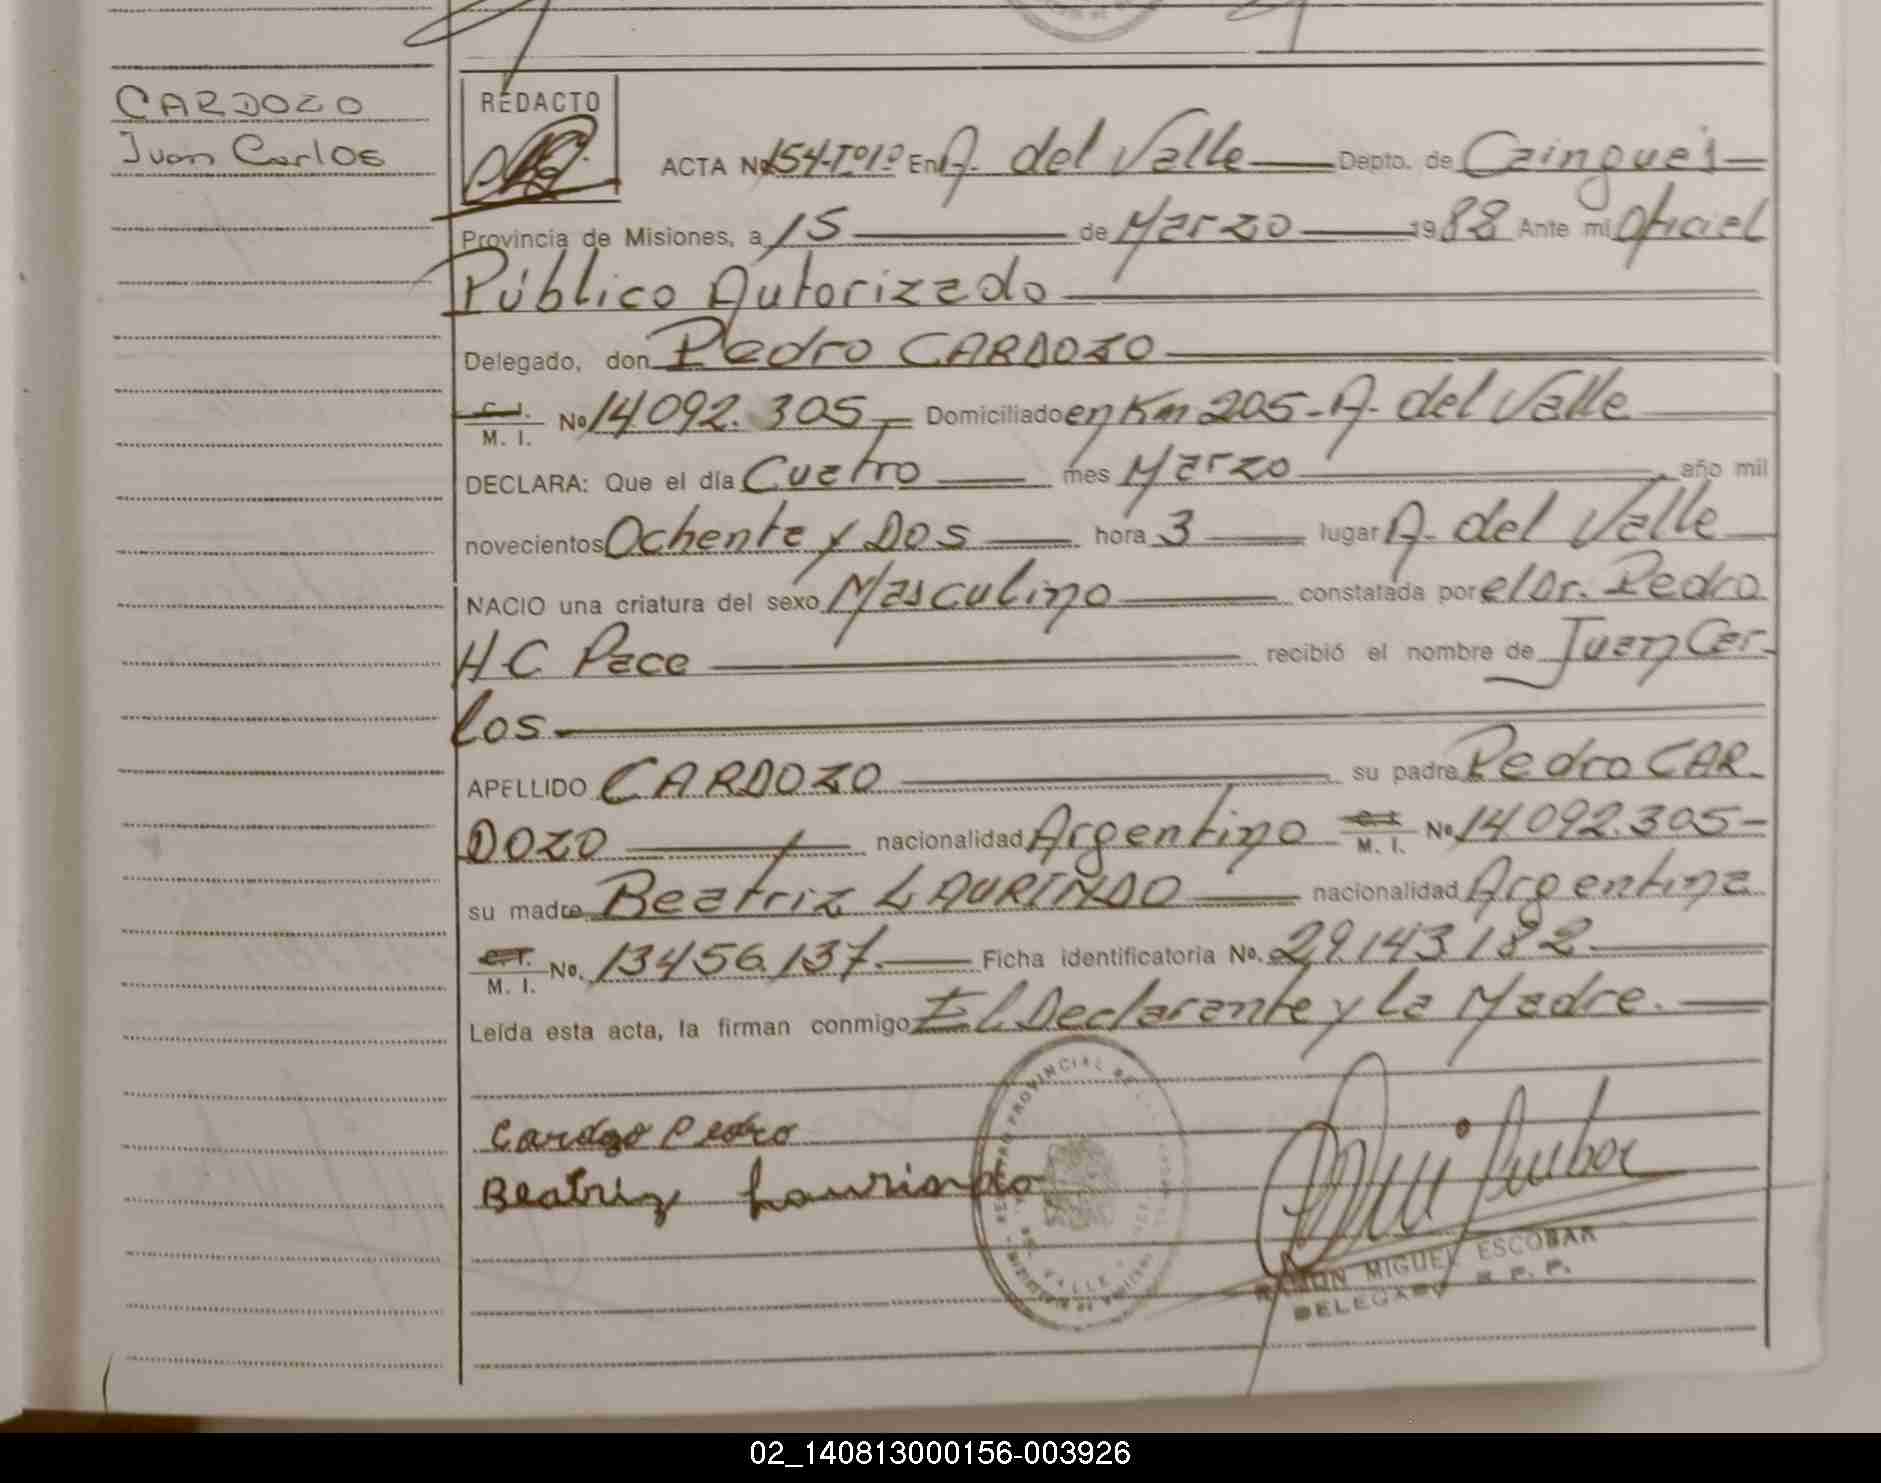 CARDOZO
Juan Carlos
REDACTO
ACTA No 154-Tº1º En A. del Valle Depto. de Cainguás
Provincia de Misiones, a 15 de Marzo 1988 Ante mi Oficial
Público Autorizado
Delegado, don Pedro CARDOZO
C. I.
M. I. No 14092.305 Domiciliado en Km 205-A. del Valle
DECLARA: Que el día Cuatro mes Marzo año mil
novecientos Ochenta y Dos hora 3 lugar A. del Valle
NACIO una criatura del sexo Masculino constatada por el Dr. Pedro
H C Pace recibió el nombre de Juan Car-
los
APELLIDO CARDOZO su padre Pedro CAR-
DOZO nacionalidad Argentino M. I. No 14092.305-
su madre Beatriz LAURINDO nacionalidad Argentina
C. I.
M. I. No. 13456.137.- Ficha identificatoria No. 29.143.182
Leída esta acta, la firman conmigo El Declarante y la Madre.
Cardozo Pedro
Beatriz Laurindo
RAMON MIGUEL ESCOBAR
DELEGADO R. P. P.
02_140813000156-003926